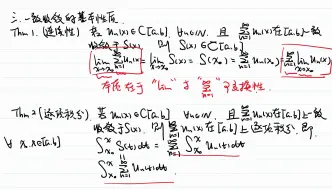 三. 一致收敛的基本性质.
Thm 1 (连续性) 若 Uₙ(x)∈C[a.b], ∀n∈ℕ, 且 ∑_{n=1}^{∞} Uₙ(x)在[a.b]一致
收敛于S(x), 则 S(x)∈C[a.b]
lim_{x→x₀} ∑_{n=1}^{∞} Uₙ(x) = lim_{x→x₀} S(x) = S(x₀) = ∑_{n=1}^{∞} Uₙ(x₀) = ∑_{n=1}^{∞} lim_{x→x₀} Uₙ(x)
"lim" 与 "∑_{n=1}^{∞}" 可交换性.
Thm 2 (逐项积分) 若 Uₙ(x)∈C[a.b] ∀n∈ℕ, 且 ∑_{n=1}^{∞} Uₙ(x)在[a.b]上一致
收敛于S(x), 则 ∑_{n=1}^{∞} Uₙ(x)在[a.b]上逐项积分, 即.
∀ x, x₀∈[a.b] ∫_{x₀}^{x} S(t)dt = ∑_{n=1}^{∞} ∫_{x₀}^{x} Uₙ(t)dt
∫_{x₀}^{x} ∑_{n=1}^{∞} Uₙ(t)dt